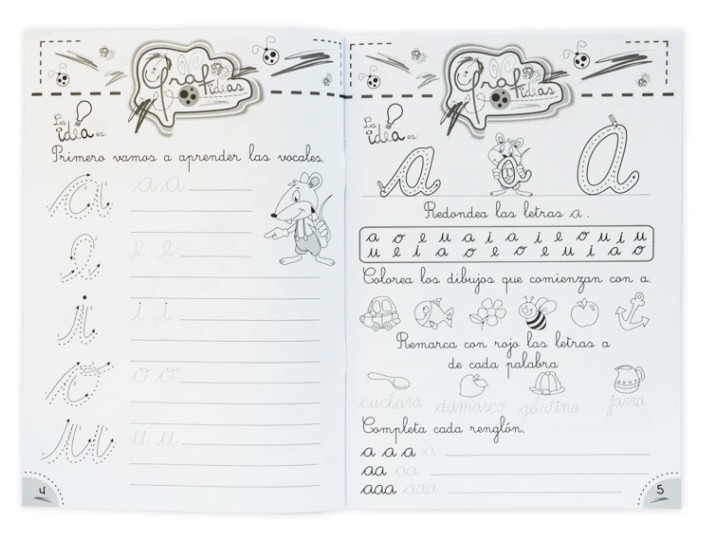 Grafideas
La idea es:
Primero vamos a aprender las vocales.
a a a
e e e
i i i
o o o
u u u
4
Grafideas
La idea es:
a a
Redondea las letras a.
a o e u a i a i e o u i u
u e i a o e o e u i a o
Colorea los dibujos que comienzan con a.
Remarca con rojo las letras a
de cada palabra
cuchara damasco gelatina jarra
Completa cada renglón.
a a a a
aa aa
aaa aaa
5